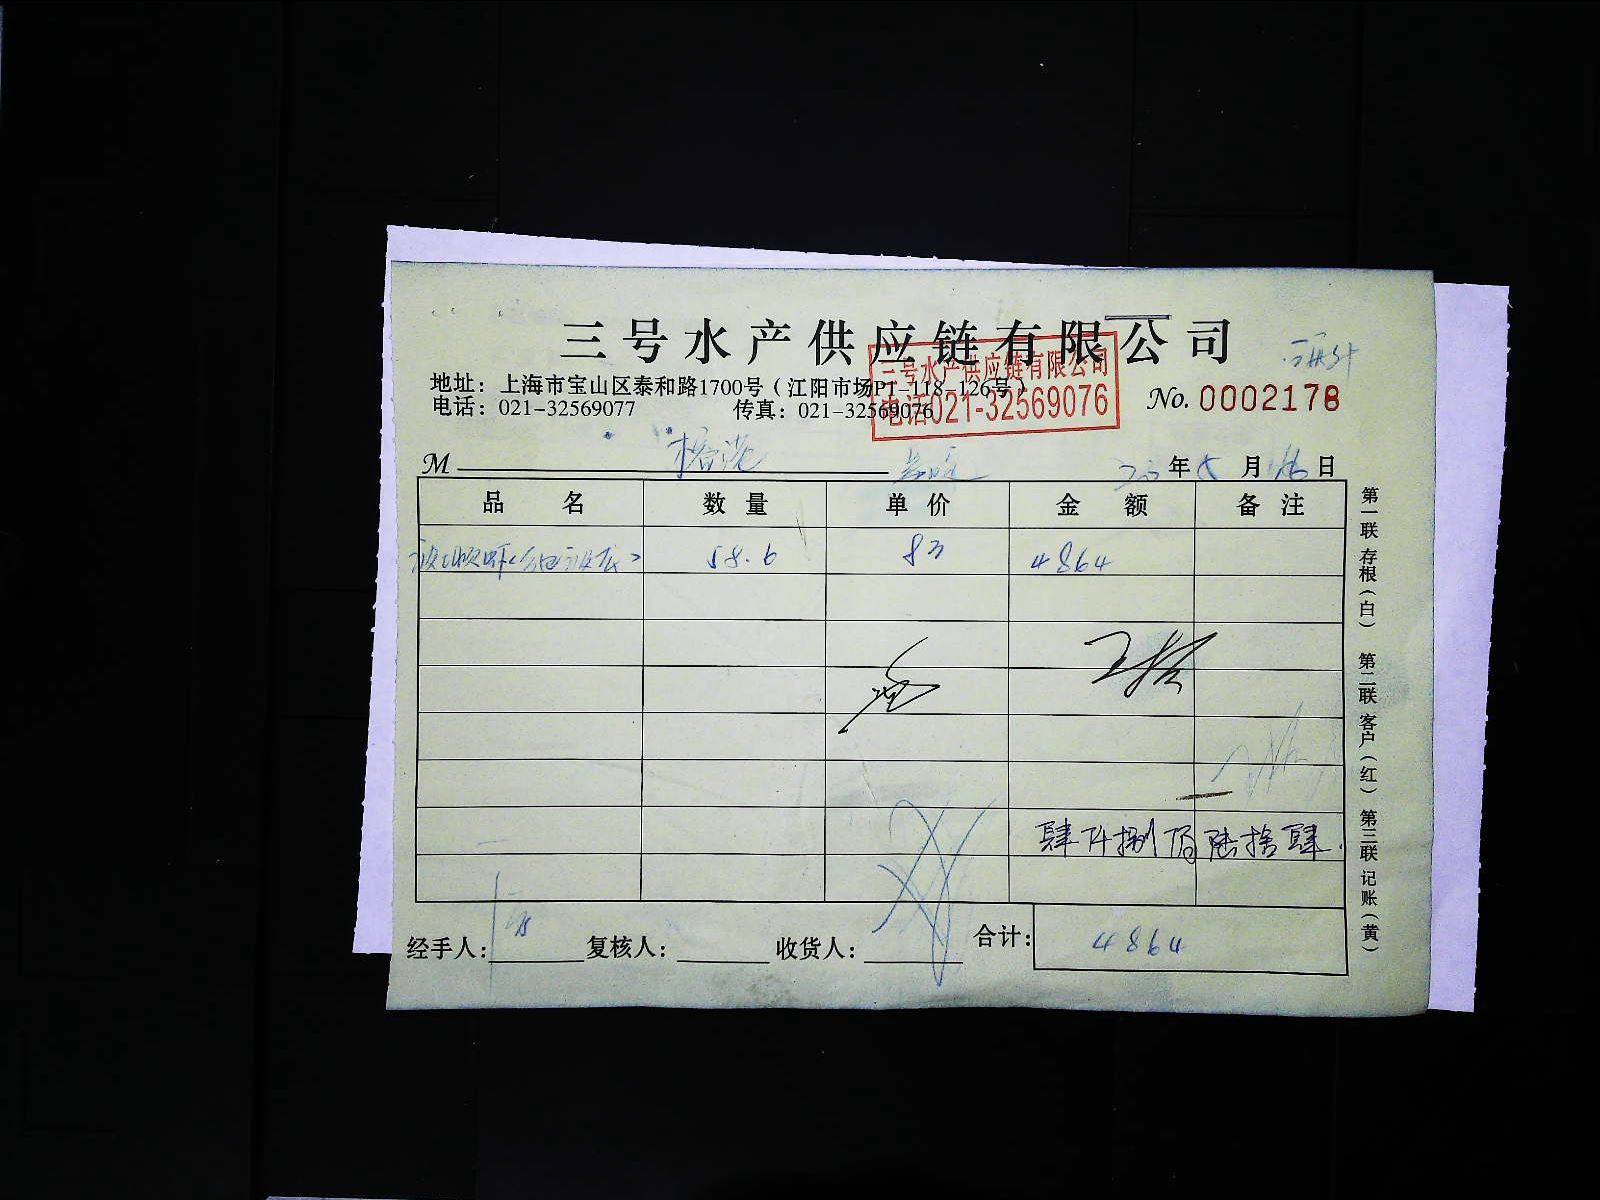 三号水产供应链有限公司
三号水产供应链有限公司
电话021-32569076
地址：上海市宝山区泰和路1700号（江阳市场P1-118-126号）
电话：021-32569077 传真：021-32569076
No. 0002178
M 年 月 日
品名 数量 单价 金额 备注
58.6 83 4864
肆仟捌佰陆拾肆
经手人： 复核人： 收货人： 合计： 4864
第一联 存根（白） 第二联 客户（红） 第三联 记账（黄）